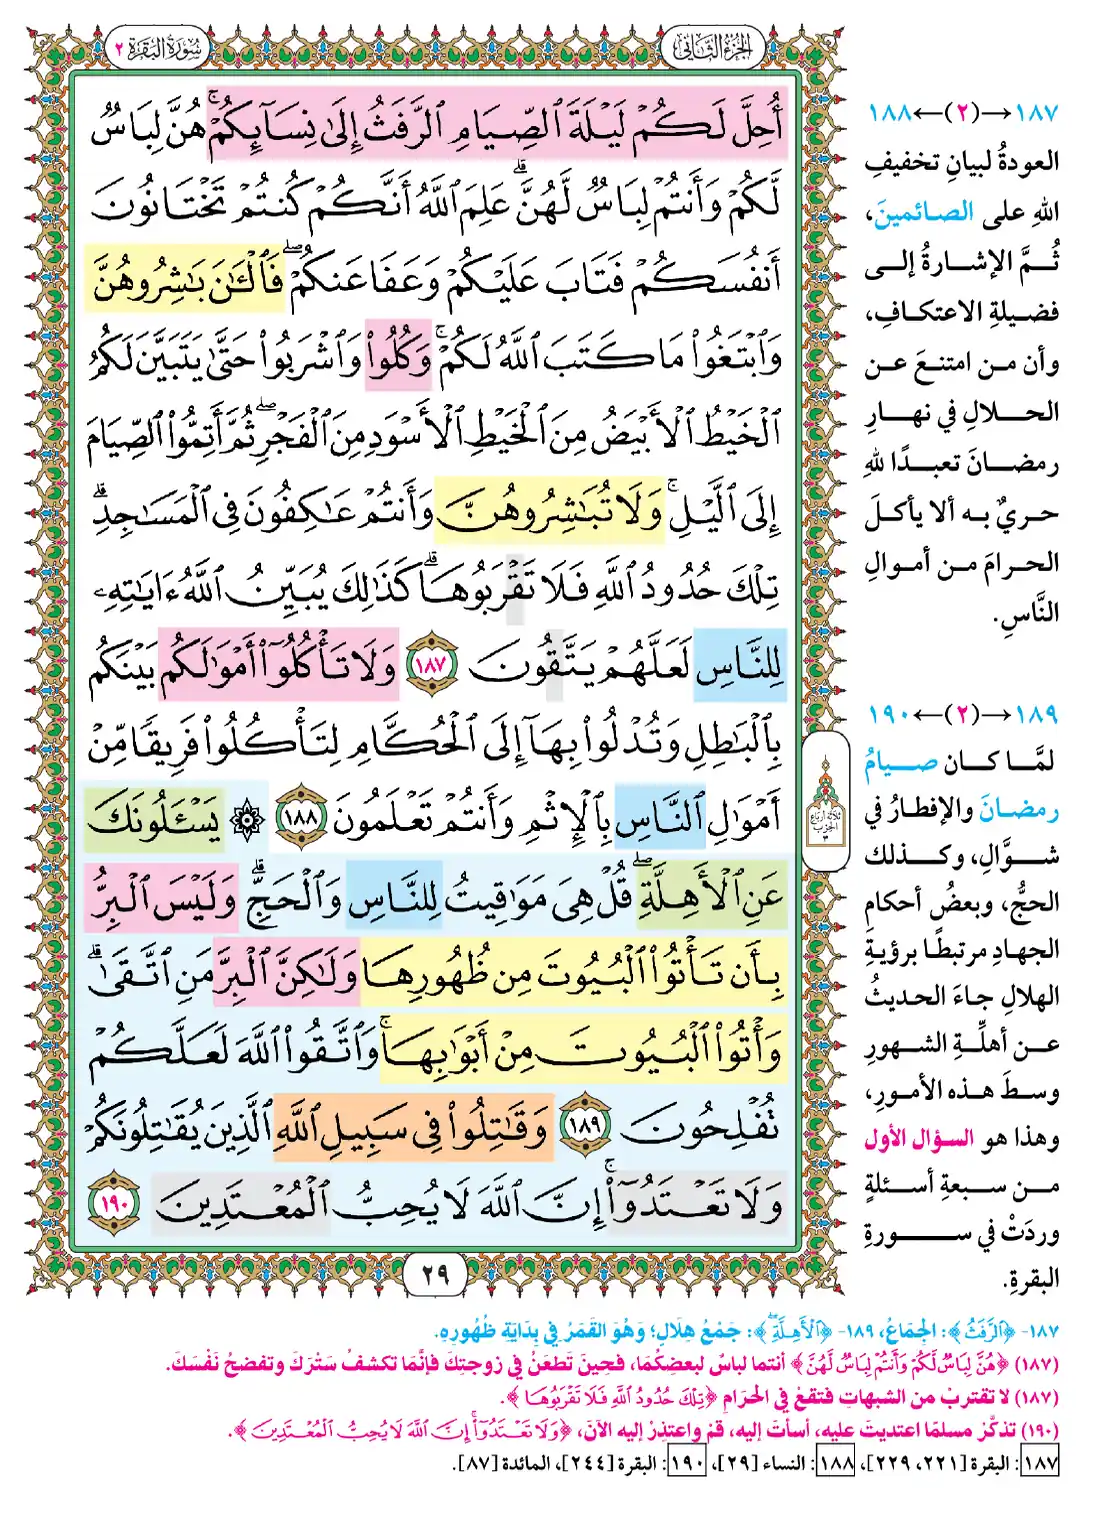 الجزء الثاني
سورة البقرة ٢
أُحِلَّ لَكُمْ لَيْلَةَ ٱلصِّيَامِ ٱلرَّفَثُ إِلَىٰ نِسَآئِكُمْ ۚ هُنَّ لِبَاسٌ
لَّكُمْ وَأَنتُمْ لِبَاسٌ لَّهُنَّ ۗ عَلِمَ ٱللَّهُ أَنَّكُمْ كُنتُمْ تَخْتَانُونَ
أَنفُسَكُمْ فَتَابَ عَلَيْكُمْ وَعَفَا عَنكُمْ ۖ فَٱلْـَٰٔنَ بَـٰشِرُوهُنَّ
وَٱبْتَغُوا۟ مَا كَتَبَ ٱللَّهُ لَكُمْ ۚ وَكُلُوا۟ وَٱشْرَبُوا۟ حَتَّىٰ يَتَبَيَّنَ لَكُمُ
ٱلْخَيْطُ ٱلْأَبْيَضُ مِنَ ٱلْخَيْطِ ٱلْأَسْوَدِ مِنَ ٱلْفَجْرِ ۖ ثُمَّ أَتِمُّوا۟ ٱلصِّيَامَ
إِلَى ٱلَّيْلِ ۚ وَلَا تُبَـٰشِرُوهُنَّ وَأَنتُمْ عَـٰكِفُونَ فِى ٱلْمَسَـٰجِدِ ۗ
تِلْكَ حُدُودُ ٱللَّهِ فَلَا تَقْرَبُوهَا ۗ كَذَٰلِكَ يُبَيِّنُ ٱللَّهُ ءَايَـٰتِهِۦ
لِلنَّاسِ لَعَلَّهُمْ يَتَّقُونَ ١٨٧ وَلَا تَأْكُلُوٓا۟ أَمْوَٰلَكُم بَيْنَكُم
بِٱلْبَـٰطِلِ وَتُدْلُوا۟ بِهَآ إِلَى ٱلْحُكَّامِ لِتَأْكُلُوا۟ فَرِيقًا مِّنْ
أَمْوَٰلِ ٱلنَّاسِ بِٱلْإِثْمِ وَأَنتُمْ تَعْلَمُونَ ١٨٨ ۞ يَسْـَٔلُونَكَ
عَنِ ٱلْأَهِلَّةِ ۖ قُلْ هِىَ مَوَٰقِيتُ لِلنَّاسِ وَٱلْحَجِّ ۗ وَلَيْسَ ٱلْبِرُّ
بِأَن تَأْتُوا۟ ٱلْبُيُوتَ مِن ظُهُورِهَا وَلَـٰكِنَّ ٱلْبِرَّ مَنِ ٱتَّقَىٰ ۗ
وَأْتُوا۟ ٱلْبُيُوتَ مِنْ أَبْوَٰبِهَا ۚ وَٱتَّقُوا۟ ٱللَّهَ لَعَلَّكُمْ
تُفْلِحُونَ ١٨٩ وَقَـٰتِلُوا۟ فِى سَبِيلِ ٱللَّهِ ٱلَّذِينَ يُقَـٰتِلُونَكُمْ
وَلَا تَعْتَدُوٓا۟ ۚ إِنَّ ٱللَّهَ لَا يُحِبُّ ٱلْمُعْتَدِينَ ١٩٠
٢٩
ثلاثة أرباع
الحزب
٣
١٨٧→(٢)←١٨٨
العودةُ لبيانِ تخفيفِ
اللهِ على الصائمينَ،
ثُمَّ الإشارةُ إلى
فضيلةِ الاعتكافِ،
وأن من امتنعَ عن
الحلالِ في نهارِ
رمضانَ تعبدًا للهِ
حريٌ به ألا يأكلَ
الحرامَ من أموالِ
النَّاسِ.
١٨٩→(٢)←١٩٠
لمَّا كان صيامُ
رمضانَ والإفطارُ في
شوَّالِ، وكذلك
الحجُّ، وبعضُ أحكامِ
الجهادِ مرتبطًا برؤيةِ
الهلالِ جاءَ الحديثُ
عن أهلَّةِ الشهورِ
وسطَ هذه الأمورِ،
وهذا هو السؤال الأول
من سبعةِ أسئلةٍ
وردَتْ في سورةِ
البقرةِ.
١٨٧- ﴿ٱلرَّفَثُ﴾: الجِمَاعُ، ١٨٩- ﴿ٱلْأَهِلَّةِ ۖ﴾: جَمْعُ هِلَالٍ؛ وَهُوَ القَمَرُ فِي بِدَايَةِ ظُهُورِهِ.
(١٨٧) ﴿هُنَّ لِبَاسٌ لَّكُمْ وَأَنتُمْ لِبَاسٌ لَّهُنَّ﴾ أنتما لباسٌ لبعضِكُمَا، فحِينَ تَطعَنُ في زوجتِكَ فإنَّمَا تكشفُ سَتْرَكَ وتفضحُ نَفْسَكَ.
(١٨٧) لا تقتربْ من الشبهاتِ فتقعَ في الحَرَامِ ﴿تِلْكَ حُدُودُ ٱللَّهِ فَلَا تَقْرَبُوهَا﴾.
(١٩٠) تذكَّرْ مسلمًا اعتديتَ عليه، أسأتَ إليه، قمْ واعتذِرْ إليه الآنَ، ﴿وَلَا تَعْتَدُوٓا۟ ۚ إِنَّ ٱللَّهَ لَا يُحِبُّ ٱلْمُعْتَدِينَ﴾.
١٨٧: البقرة [٢٢١، ٢٢٩]، ١٨٨: النساء [٢٩]، ١٩٠: البقرة [٢٤٤]، المائدة [٨٧].